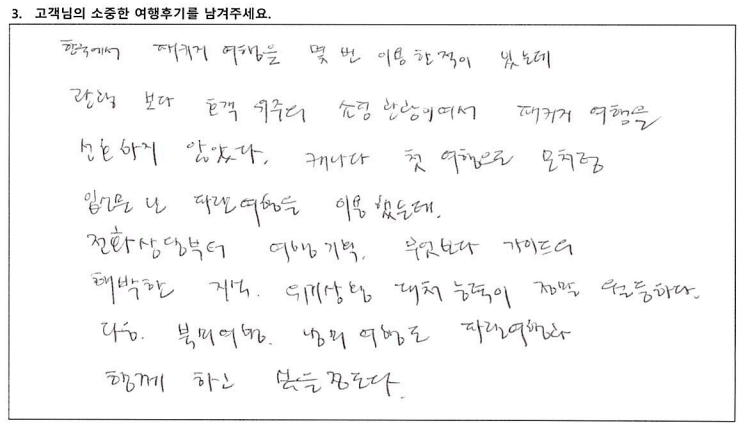 3. 고객님의 소중한 여행후기를 남겨주세요.
한국에서 패키지 여행을 몇 번 이용한적이 있는데
관광 보다 호객 위주의 쇼핑 관광이여서 패키지 여행을
선호하지 않았다. 캐나다 첫 여행으로 모처럼
입소문 난 파란여행을 이용했는데.
전화상담부터 여행기획. 무엇보다 가이드의
해박한 지식. 위기상황 대처 능력이 정말 월등하다.
다음. 북미여행. 남미 여행도 파란여행과
함께 하고 싶을정도다.